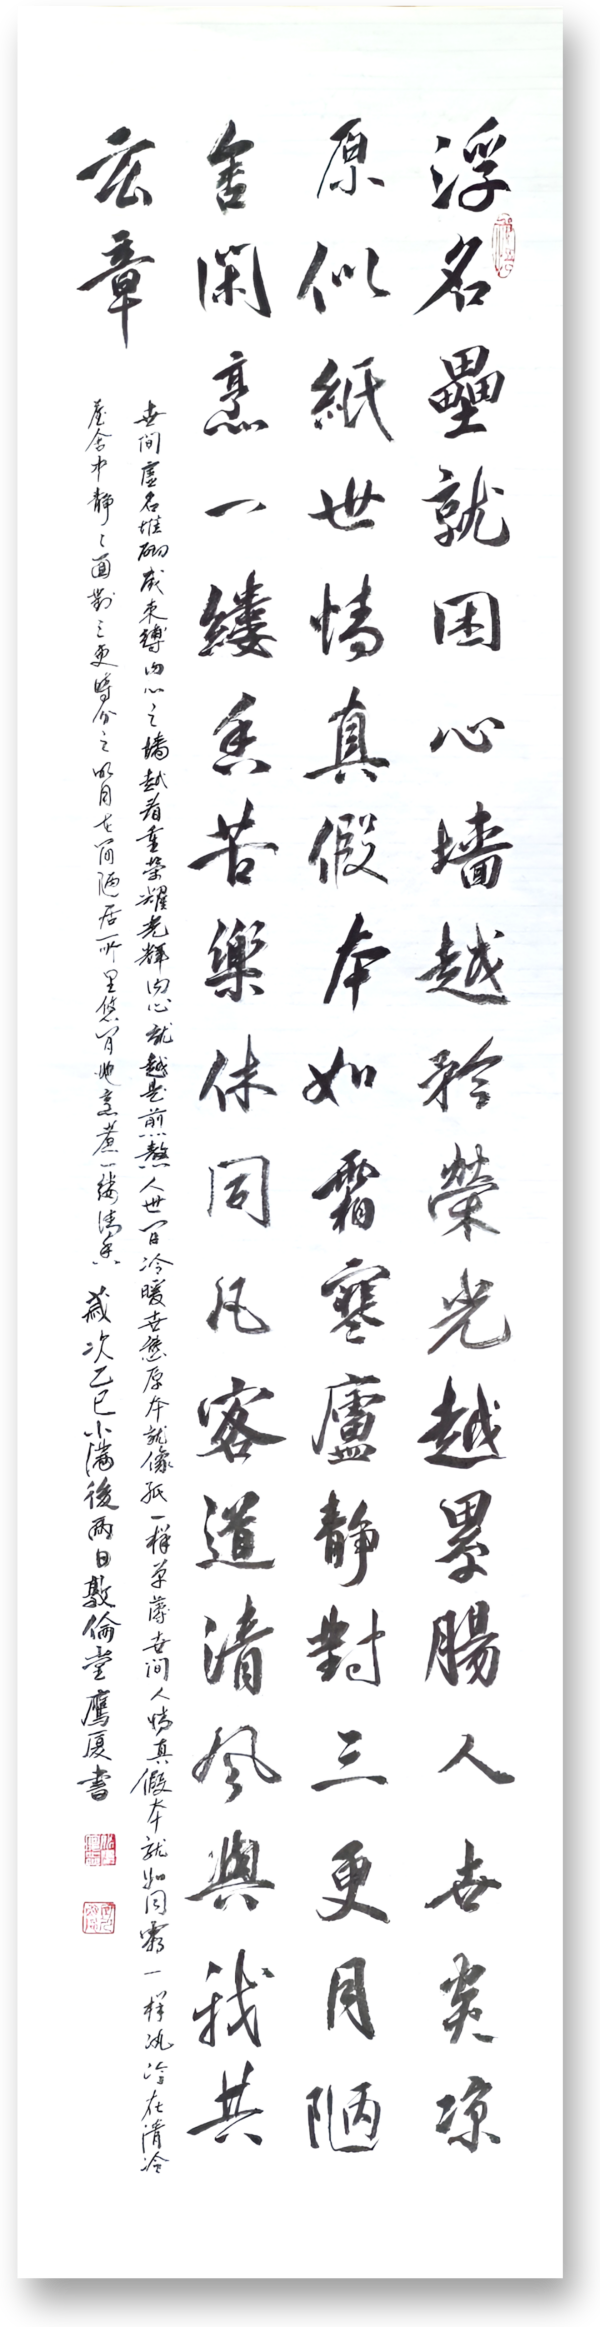 浮名壘就困心墻越矜榮光越累腸人世炎涼
原似紙世情真假本如霜寒廬静對三更月陋
舍閑烹一縷香苦樂休同凡客道清風與我共
玄章
世间虛名堆砌成束縛内心之墻越看重榮耀光輝内心就越是煎熬人世间冷暖世態原本就像紙一样单薄世间人情真假本就如同霜一样冰冷在清冷
屋舍中靜〻面對三更時分之明月在简陋居所里悠闲地烹煮一缕清香 歲次乙巳小满後兩日敦倫堂鷹厦書